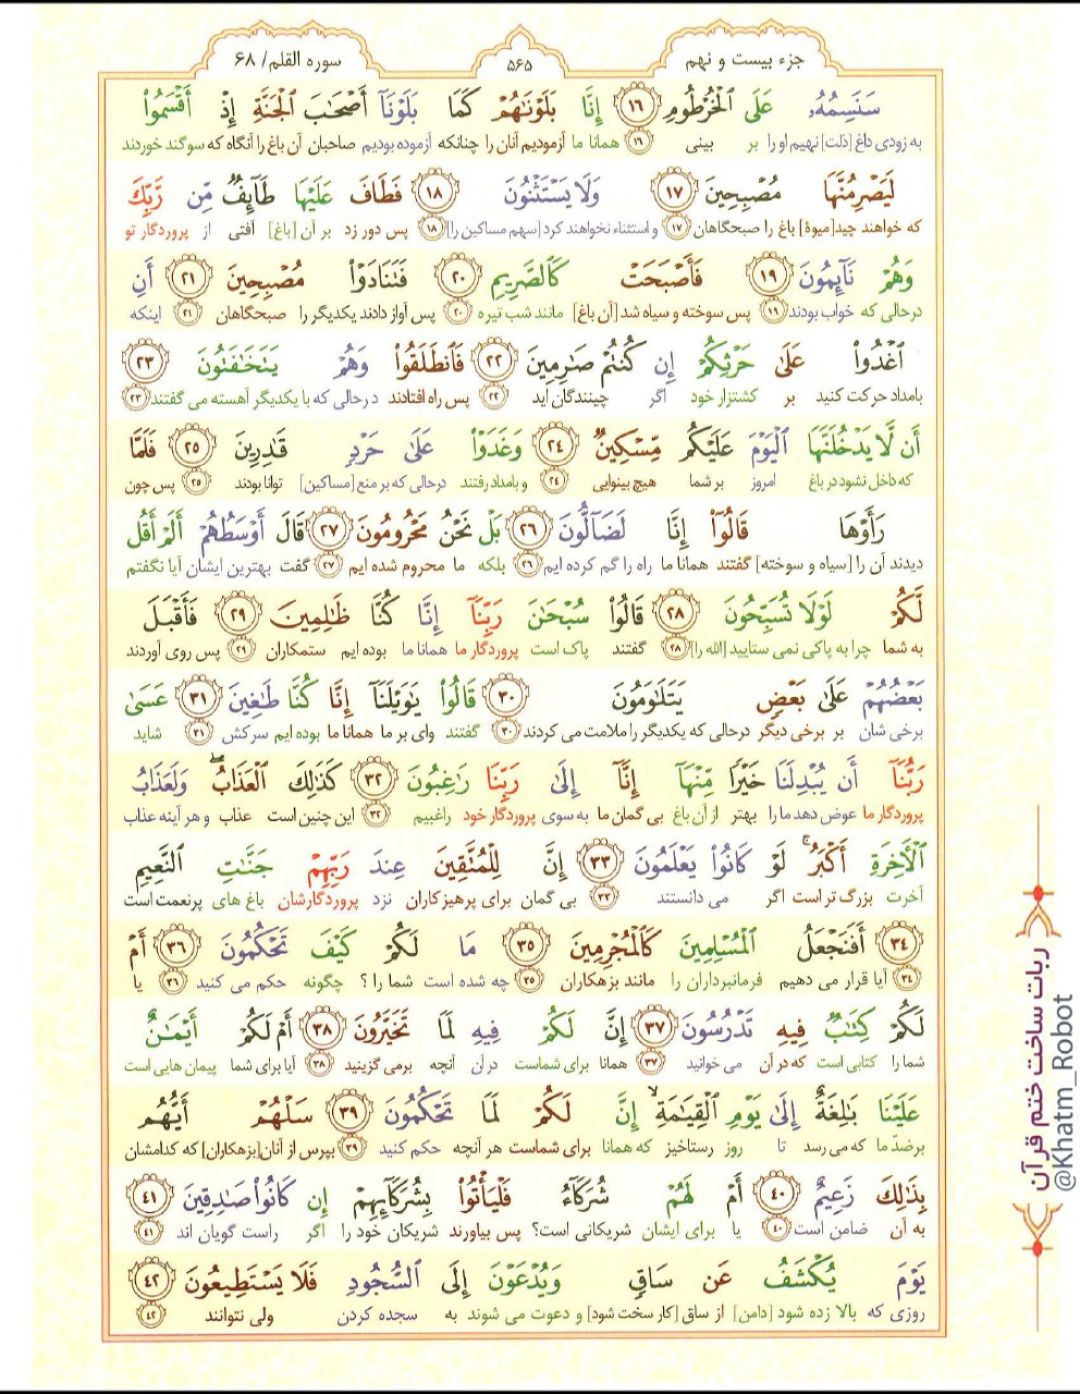 جزء بیست و نهم
۵۶۵
سوره القلم/ ۶۸
سَنَسِمُهُۥ عَلَى ٱلْخُرْطُومِ ۱۶ إِنَّا بَلَوْنَٰهُمْ كَمَا بَلَوْنَآ أَصْحَٰبَ ٱلْجَنَّةِ إِذْ أَقْسَمُوا۟
به زودی داغ [ذلت] نهیم او را بر بینی ۱۶ همانا ما آزمودیم آنان را چنانکه آزموده بودیم صاحبان آن باغ را آنگاه که سوگند خوردند
لَيَصْرِمُنَّهَا مُصْبِحِينَ ۱۷ وَلَا يَسْتَثْنُونَ ۱۸ فَطَافَ عَلَيْهَا طَآئِفٌ مِّن رَّبِّكَ
که خواهند چید [میوهٔ] باغ را صبحگاهان ۱۷ و استثناء نخواهند کرد [سهم مساکین را] ۱۸ پس دور زد بر آن [باغ] آفتی از پروردگار تو
وَهُمْ نَآئِمُونَ ۱۹ فَأَصْبَحَتْ كَٱلصَّرِيمِ ۲۰ فَتَنَادَوْا۟ مُصْبِحِينَ ۲۱ أَنِ
درحالی که خواب بودند ۱۹ پس سوخته و سیاه شد [آن باغ] مانند شب تیره ۲۰ پس آواز دادند یکدیگر را صبحگاهان ۲۱ اینکه
ٱغْدُوا۟ عَلَىٰ حَرْثِكُمْ إِن كُنتُمْ صَٰرِمِينَ ۲۲ فَٱنطَلَقُوا۟ وَهُمْ يَتَخَٰفَتُونَ ۲۳
بامداد حرکت کنید بر کشتزار خود اگر چینندگان اید ۲۲ پس راه افتادند درحالی که با یکدیگر آهسته می گفتند ۲۳
أَن لَّا يَدْخُلَنَّهَا ٱلْيَوْمَ عَلَيْكُم مِّسْكِينٌ ۲۴ وَغَدَوْا۟ عَلَىٰ حَرْدٍ قَٰدِرِينَ ۲۵ فَلَمَّا
که داخل نشود در باغ امروز بر شما هیچ بینوایی ۲۴ و بامداد رفتند درحالی که بر منع [مساکین] توانا بودند ۲۵ پس چون
رَأَوْهَا قَالُوٓا۟ إِنَّا لَضَآلُّونَ ۲۶ بَلْ نَحْنُ مَحْرُومُونَ ۲۷ قَالَ أَوْسَطُهُمْ أَلَمْ أَقُل
دیدند آن را [سیاه و سوخته] گفتند همانا ما راه را گم کرده ایم ۲۶ بلکه ما محروم شده ایم ۲۷ گفت بهترین ایشان آیا نگفتم
لَّكُمْ لَوْلَا تُسَبِّحُونَ ۲۸ قَالُوا۟ سُبْحَٰنَ رَبِّنَآ إِنَّا كُنَّا ظَٰلِمِينَ ۲۹ فَأَقْبَلَ
به شما چرا به پاکی نمی ستایید [الله را] ۲۸ گفتند پاک است پروردگار ما همانا ما بوده ایم ستمکاران ۲۹ پس روی آوردند
بَعْضُهُمْ عَلَىٰ بَعْضٍ يَتَلَٰوَمُونَ ۳۰ قَالُوا۟ يَٰوَيْلَنَآ إِنَّا كُنَّا طَٰغِينَ ۳۱ عَسَىٰ
برخی شان بر برخی دیگر درحالی که یکدیگر را ملامت می کردند ۳۰ گفتند وای بر ما همانا ما بوده ایم سرکش ۳۱ شاید
رَبُّنَآ أَن يُبْدِلَنَا خَيْرًا مِّنْهَآ إِنَّآ إِلَىٰ رَبِّنَا رَٰغِبُونَ ۳۲ كَذَٰلِكَ ٱلْعَذَابُ ۖ وَلَعَذَابُ
پروردگار ما عوض دهد ما را بهتر از آن باغ بی گمان ما به سوی پروردگار خود راغبیم ۳۲ این چنین است عذاب و هر آینه عذاب
ٱلْءَاخِرَةِ أَكْبَرُ ۚ لَوْ كَانُوا۟ يَعْلَمُونَ ۳۳ إِنَّ لِلْمُتَّقِينَ عِندَ رَبِّهِمْ جَنَّٰتِ ٱلنَّعِيمِ
آخرت بزرگ تر است اگر می دانستند ۳۳ بی گمان برای پرهیزکاران نزد پروردگارشان باغ های پرنعمت است
۳۴ أَفَنَجْعَلُ ٱلْمُسْلِمِينَ كَٱلْمُجْرِمِينَ ۳۵ مَا لَكُمْ كَيْفَ تَحْكُمُونَ ۳۶ أَمْ
۳۴ آیا قرار می دهیم فرمانبرداران را مانند بزهکاران ۳۵ چه شده است شما را ؟ چگونه حکم می کنید ۳۶ یا
لَكُمْ كِتَٰبٌ فِيهِ تَدْرُسُونَ ۳۷ إِنَّ لَكُمْ فِيهِ لَمَا تَخَيَّرُونَ ۳۸ أَمْ لَكُمْ أَيْمَٰنٌ
شما را کتابی است که در آن می خوانید ۳۷ همانا برای شماست در آن آنچه برمی گزینید ۳۸ آیا برای شما پیمان هایی است
عَلَيْنَا بَٰلِغَةٌ إِلَىٰ يَوْمِ ٱلْقِيَٰمَةِ ۙ إِنَّ لَكُمْ لَمَا تَحْكُمُونَ ۳۹ سَلْهُمْ أَيُّهُم
برضدّ ما که می رسد تا روز رستاخیز که همانا برای شماست هر آنچه حکم کنید ۳۹ بپرس از آنان [بزهکاران] که کدامشان
بِذَٰلِكَ زَعِيمٌ ۴۰ أَمْ لَهُمْ شُرَكَآءُ فَلْيَأْتُوا۟ بِشُرَكَآئِهِمْ إِن كَانُوا۟ صَٰدِقِينَ ۴۱
به آن ضامن است ۴۰ یا برای ایشان شریکانی است؟ پس بیاورند شریکان خود را اگر راست گویان اند ۴۱
يَوْمَ يُكْشَفُ عَن سَاقٍ وَيُدْعَوْنَ إِلَى ٱلسُّجُودِ فَلَا يَسْتَطِيعُونَ ۴۲
روزی که بالا زده شود [دامن] از ساق [کار سخت شود] و دعوت می شوند به سجده کردن ولی نتوانند ۴۲
ربات ساخت ختم قرآن
@Khatm_Robot